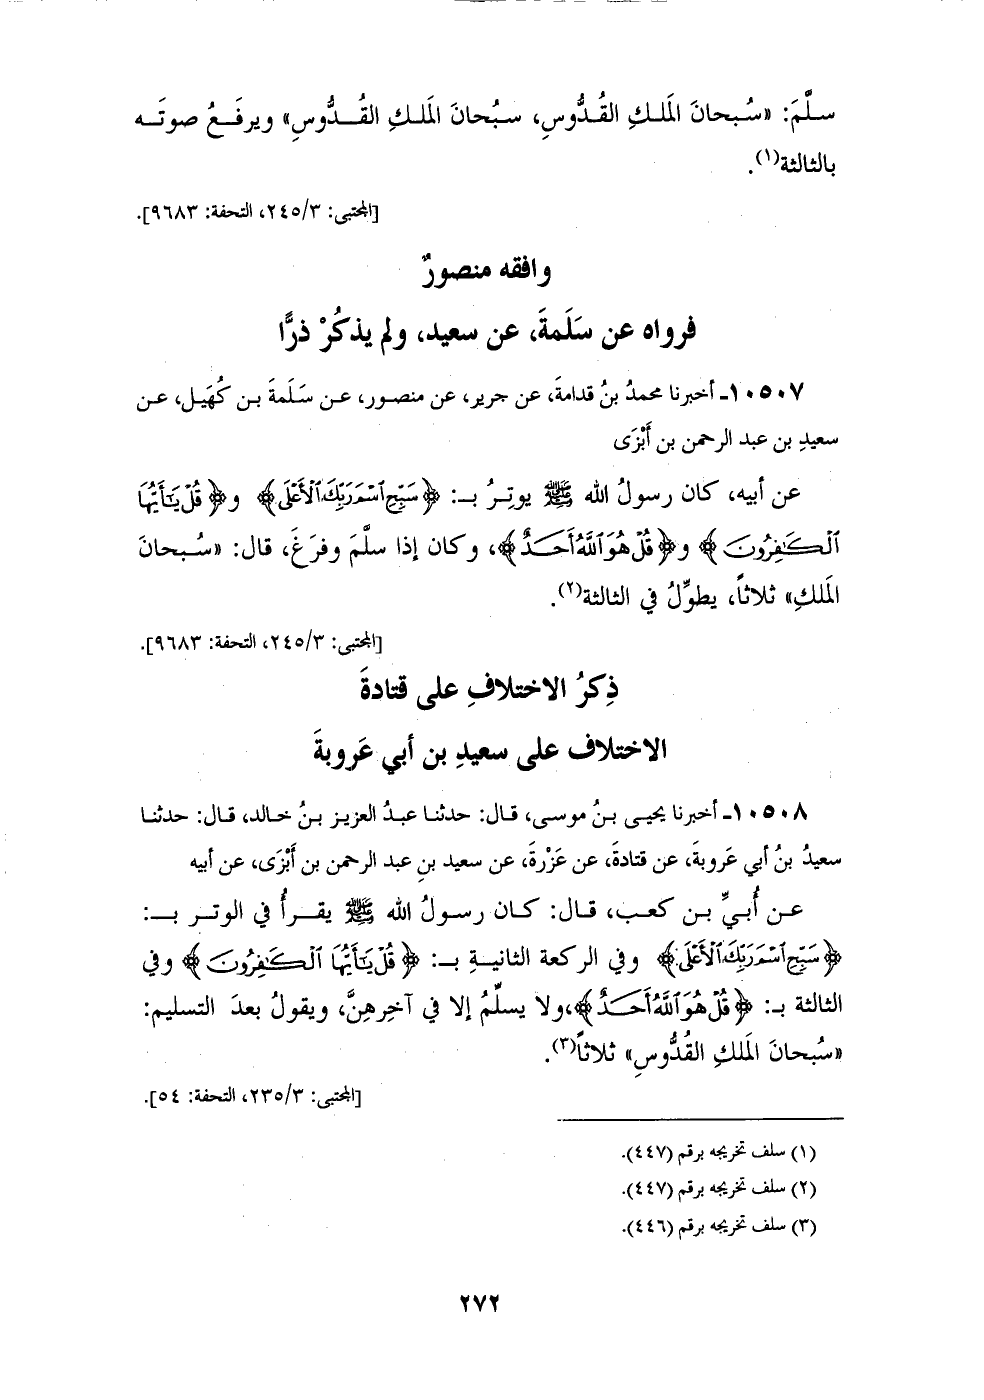 سلَّمَ: «سُبحانَ المَلكِ القُدُّوسِ، سبُحانَ المَلكِ القُدُّوسِ» ويرفَعُ صوتَه
بالثالثة(١).
[المجتبى: ٢٤٥/٣، التحفة: ٩٦٨٣].
وافقه منصورٌ
فرواه عن سَلَمةَ، عن سعيد، ولم يذكُرْ ذرًّا
١٠٥٠٧ـ أخبرنا محمدُ بنُ قدامةَ، عن جرير، عن منصور، عن سَلَمةَ بن كُهَيل، عن
سعيدِ بن عبد الرحمن بن أَبْزَى
عن أبيه، كان رسولُ الله ﷺ يوتِرُ بـ: ﴿سَبِّحِ ٱسْمَ رَبِّكَ ٱلْأَعْلَى﴾ و﴿قُلْ يَٰٓأَيُّهَا
ٱلْكَٰفِرُونَ﴾ و﴿قُلْ هُوَ ٱللَّهُ أَحَدٌ﴾، وكان إذا سلَّمَ وفرَغَ، قال: «سُبحانَ
المَلكِ» ثلاثاً، يطوِّلُ في الثالثة(٢).
[المجتبى: ٢٤٥/٣، التحفة: ٩٦٨٣].
ذِكرُ الاختلافِ على قتادةَ
الاختلاف على سعيدِ بن أبي عَروبةَ
١٠٥٠٨ـ أخبرنا يحيى بنُ موسى، قال: حدثنا عبدُ العزيز بنُ خالد، قال: حدثنا
سعيدُ بنُ أبي عَروبةَ، عن قتادةَ، عن عَزْرةَ، عن سعيد بنِ عبد الرحمن بن أَبْزَى، عن أبيه
عن أُبيِّ بن كعب، قال: كان رسولُ الله ﷺ يقرأُ في الوتر بـ:
﴿سَبِّحِ ٱسْمَ رَبِّكَ ٱلْأَعْلَى﴾ وفي الركعة الثانيةِ بـ: ﴿قُلْ يَٰٓأَيُّهَا ٱلْكَٰفِرُونَ﴾ وفي
الثالثة بـ: ﴿قُلْ هُوَ ٱللَّهُ أَحَدٌ﴾،ولا يسلِّمُ إلا في آخِرهِنَّ، ويقولُ بعدَ التسليم:
«سُبحانَ المَلكِ القُدُّوسِ» ثلاثاً(٣).
[المجتبى: ٢٣٥/٣، التحفة: ٥٤].
(١) سلف تخريجه برقم (٤٤٧).
(٢) سلف تخريجه برقم (٤٤٧).
(٣) سلف تخريجه برقم (٤٤٦).
٢٧٢